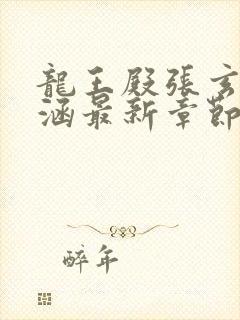 龍王殿張玄
涵最新章節
醉年